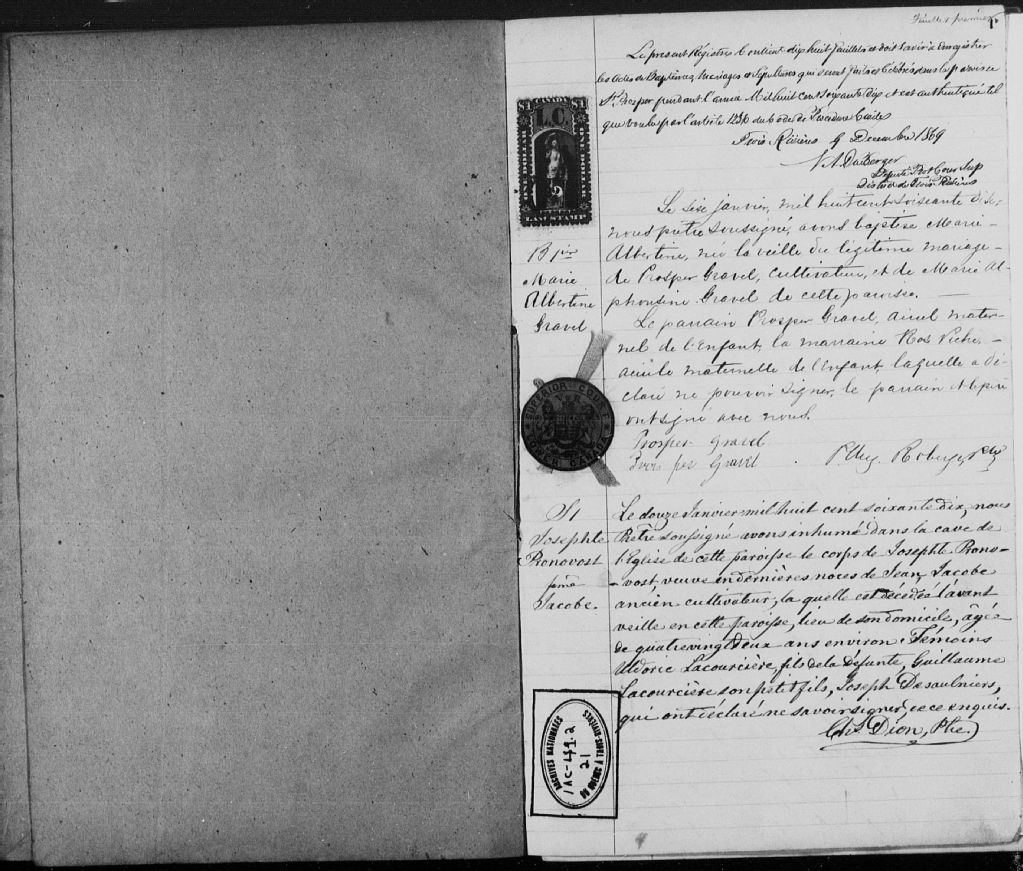 Feuillet premier
1
Le present Régistre Contient dix huit feuillets et doit servir à Enregistrer
les Actes de Baptêmes, Mariages et Sépultures qui seront faits et célébrés dans la paroisse
St. Prosper pendant l'année Mil huit cent soixante dix et est authentiqué tel
que voulu par l'article 1236 du Code de Procédure Civile
Trois Rivières 9 Decembre 1869
Député Prot Cour Sup
District de Trois Rivières
$1 CANADA $1
L.C.
ONE DOLLAR
LAW STAMP
B 1er
Marie
Albertine
Gravel
Le six janvier, mil huit cent soixante dix,
nous prêtre soussigné, avons baptisé Marie
Albertine, née la veille du légitime mariage
de Prosper Gravel, Cultivateur, et de Marie Al-
phonsine Gravel de cette paroisse.
Le parrain Prosper Gravel, aieul mater-
nel de l'Enfant, la marraine
aieule maternelle de l'Enfant laquelle a dé-
claré ne pouvoir signer, le parrain et le père
ont signé avec nous.
Prosper Gravel
Gravel
SUPERIOR COURT
LOWER CANADA
S1
Josephte
Pronovost
Jacobe.
Le douze Janvier mil huit cent soixante dix, nous
Prêtre soussigné avons inhumé dans la cave de
l'Eglise de cette paroisse le corps de Josephte Prono-
-vost, veuve en dernières noces de Jean Jacobe
ancien cultivateur, la quelle est décédée l'avant
veille en cette paroisse, lieu de son domicile, âgée
de quatrevingt deux ans environ. Témoins
Uldoric Lacourcière, fils de la défunte, Guillaume
Lacourcière son petit fils, Joseph Desaulniers,
qui ont déclaré ne savoir signer, de ce enquis.
Chs. Dion, Ptre.
ARCHIVES NATIONALES
1 AC-49.2
21
DU QUÉBEC À TROIS-RIVIÈRES